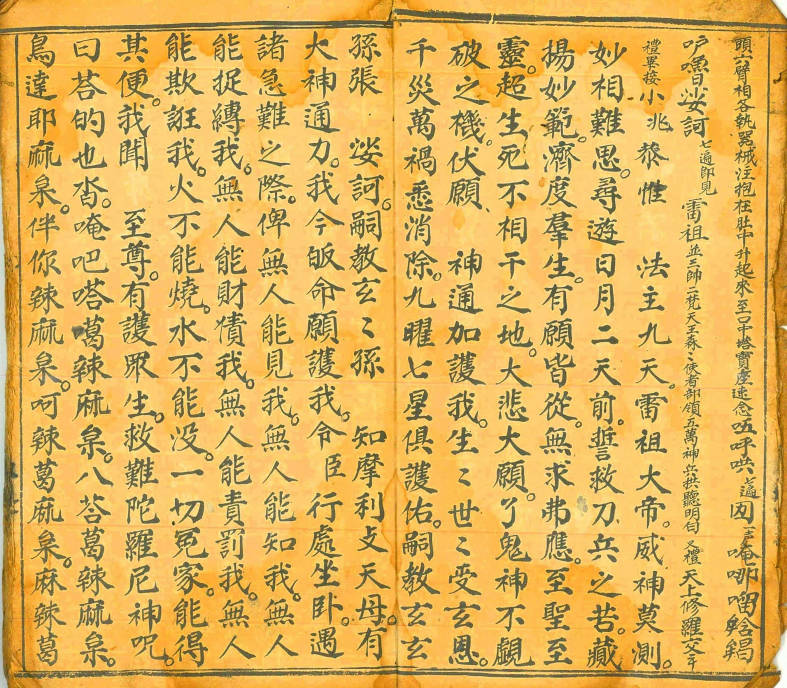 頭六臂相各執器械注抱在肚中升起來至口中塔寶座速念吽呼哄遍囟一声唵哪㗻𩏼䩠
嚕日娑訶七遍即見雷祖並三帥二梵天王森〻使者部領五萬神兵拱聽明白又禮天上修羅父母
禮畢接小兆恭惟法主九天雷祖大帝。威神莫測。
妙相難思。尋遊日月二天前。誓救刀兵之苦。藏
揚妙範。濟度羣生。有願皆從。無求弗應。至聖至
靈。超生死不相干之地。大悲大願。了鬼神不覷
破之機。伏願神通加護我。生〻世〻受玄恩。
千災萬禍悉消除。九曜七星俱護佑。嗣教玄玄
孫張娑訶。嗣教玄〻孫知摩利支天母。有
大神通力。我今皈命願護我。令臣行處坐卧。遇
諸急難之際。俾無人能見我。無人能知我。無人
能捉縛我。無人能財債我。無人能責罰我。無人
能欺誑我。火不能燒。水不能没。一切冤家。能得
其便。我聞至尊。有護眾生。救難陀羅尼神咒。
曰荅的也沓。唵吧嗒葛辣麻枲。八荅葛辣麻枲。
鳥達耶麻枲。伴你辣麻枲。呵辣葛麻枲。麻辣葛